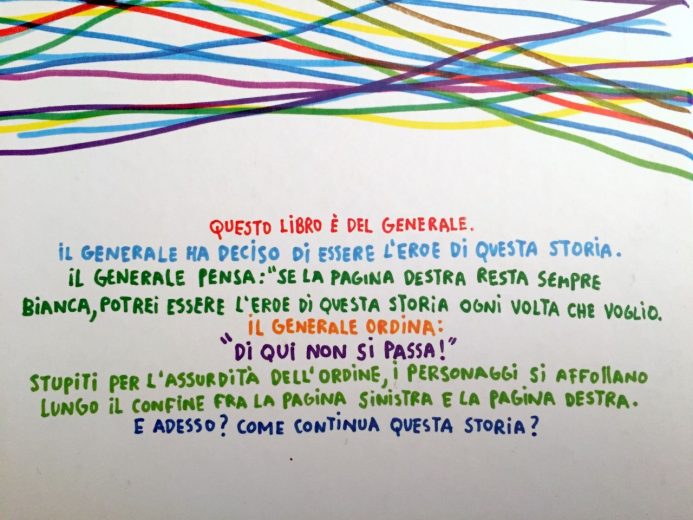 QUESTO LIBRO È DEL GENERALE.
IL GENERALE HA DECISO DI ESSERE L'EROE DI QUESTA STORIA.
IL GENERALE PENSA: "SE LA PAGINA DESTRA RESTA SEMPRE
BIANCA, POTREI ESSERE L'EROE DI QUESTA STORIA OGNI VOLTA CHE VOGLIO.
IL GENERALE ORDINA:
"DI QUI NON SI PASSA!"
STUPITI PER L'ASSURDITÀ DELL'ORDINE, I PERSONAGGI SI AFFOLLANO
LUNGO IL CONFINE FRA LA PAGINA SINISTRA E LA PAGINA DESTRA.
E ADESSO? COME CONTINUA QUESTA STORIA?